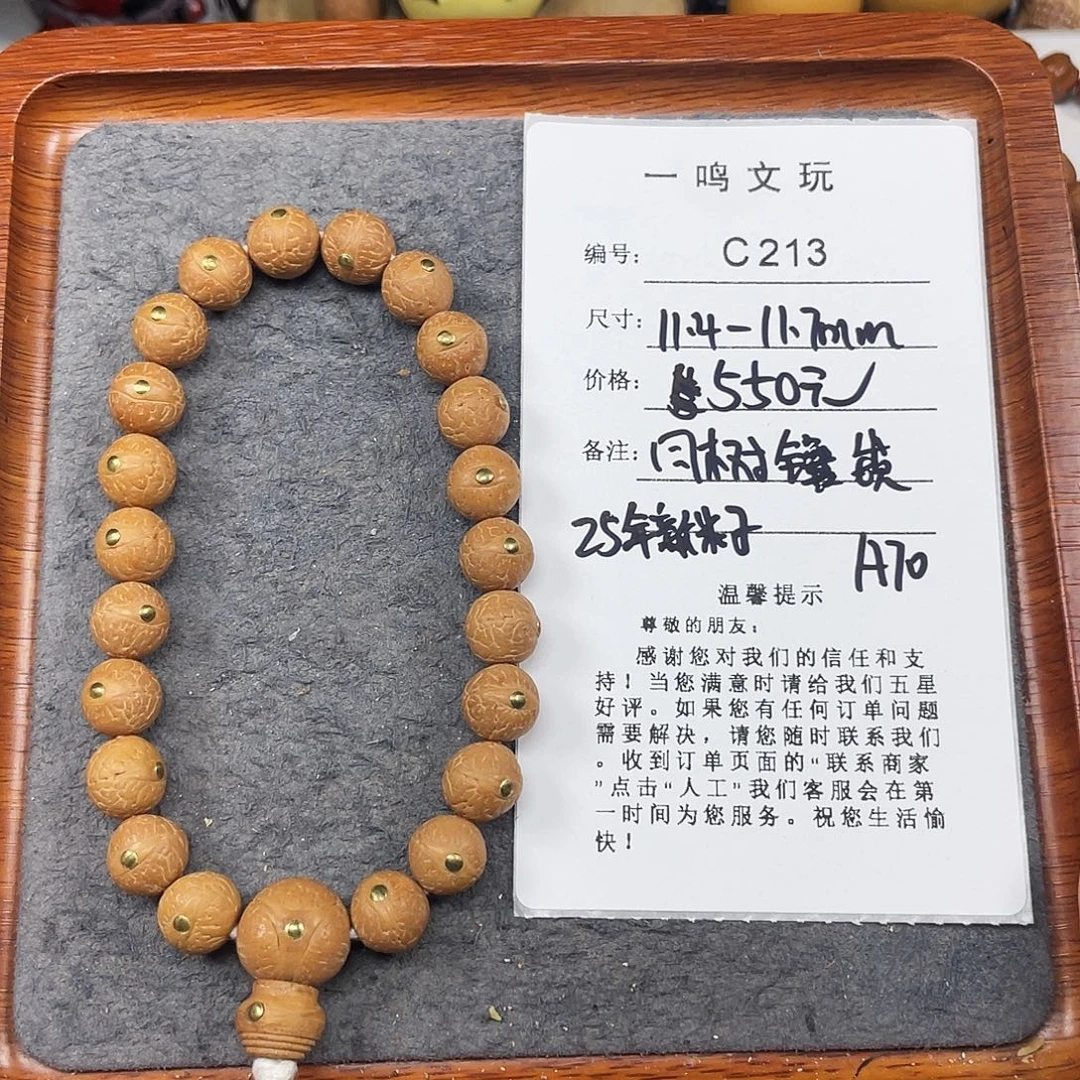 一鸣文玩
编号: C213
尺寸: 11.4-11.7mm
价格: 550元
备注: 同树
25年新籽
A70
温馨提示
尊敬的朋友：
感谢您对我们的信任和支
持！当您满意时请给我们五星
好评。如果您有任何订单问题
需要解决，请您随时联系我们
。收到订单页面的“联系商家
”点击“人工”我们客服会在第
一时间为您服务。祝您生活愉
快！